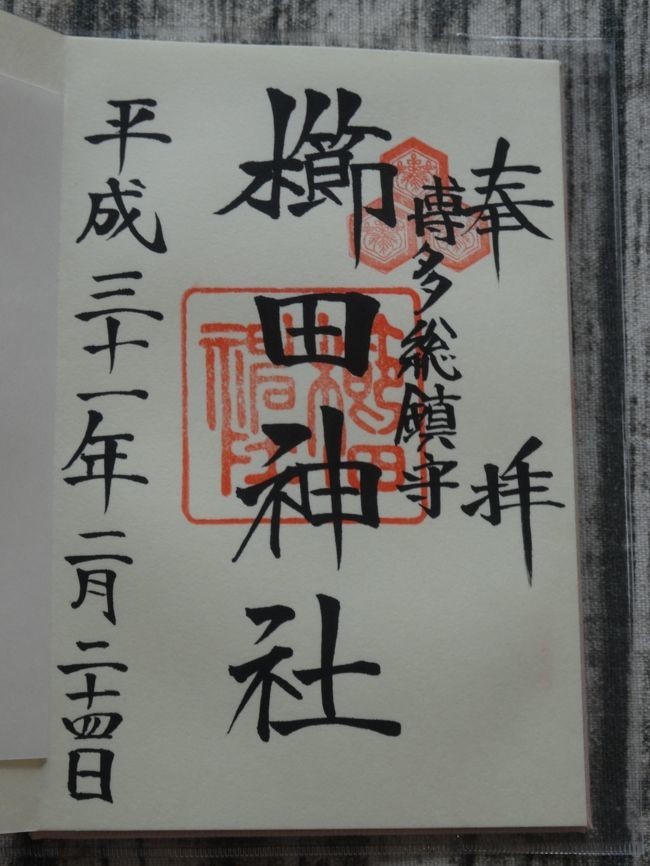 奉拝
博多総鎮守
櫛田神社
平成三十一年二月二十四日